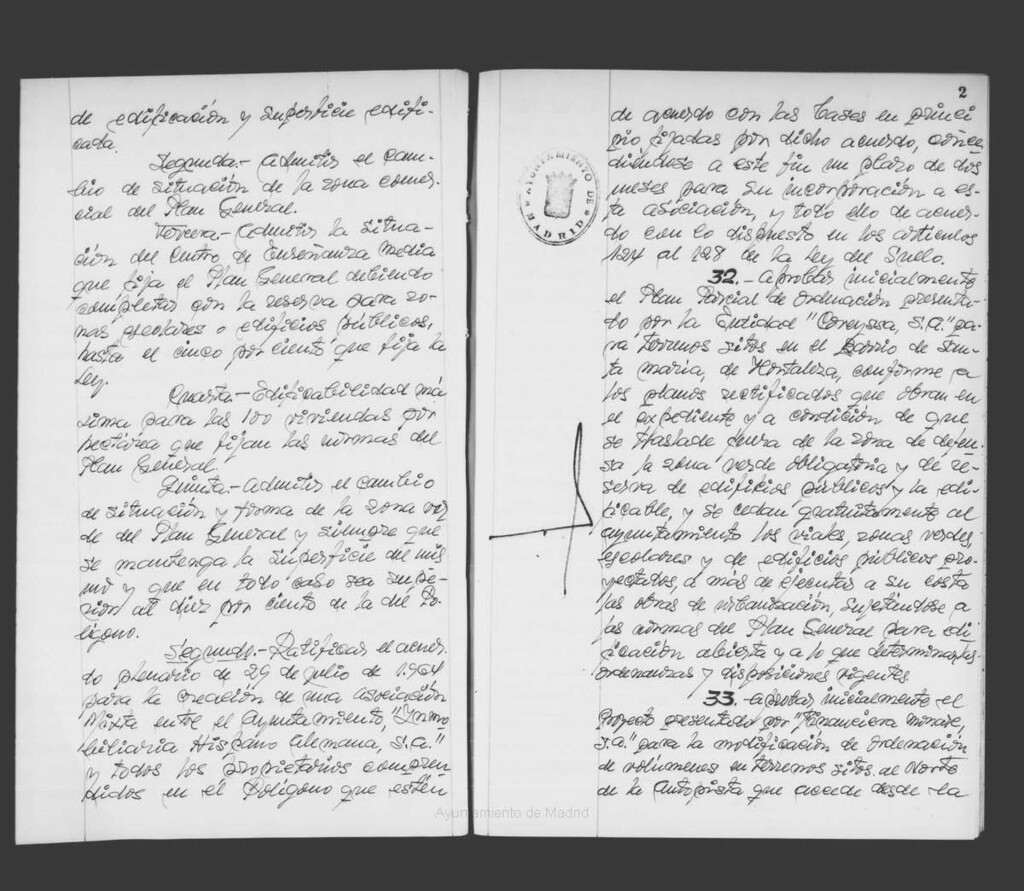 de edificación y superficie edifi-
cada.
Segunda.- Admitir el cam-
bio de situación de la zona comer-
cial del Plan General.
Tercera.- Admitir la situa-
ción del Centro de Enseñanza Media
que fija el Plan General debiendo
completar con la reserva para zo-
nas escolares o edificios públicos,
hasta el cinco por ciento que fija la
Ley.
Cuarta.- Edificabilidad má
xima para las 100 viviendas por
hectárea que fijan las normas del
Plan General.
Quinta.- Admitir el cambio
de situación y forma de la zona ver
de del Plan General y siempre que
se mantenga la superficie del mis
mo y que en todo caso sea supe-
rior al diez por ciento de la del Po-
lígono.
Segundo.- Ratificar el acuer-
do plenario de 29 de julio de 1.964
para la creación de una Asociación
Mixta entre el Ayuntamiento, "Inmo
biliaria Hispano Alemana, S.A."
y todos los propietarios compren
didos en el Polígono que estén
2
AYUNTAMIENTO DE MADRID
de acuerdo con las bases en princi
pio fijadas por dicho acuerdo, conce
diéndose a este fin un plazo de dos
meses para su incorporación a es-
ta asociación, y todo ello de acuer-
do con lo dispuesto en los artículos
124 al 128 de la Ley del Suelo.
32.- Aprobar inicialmente
el Plan Parcial de Ordenación presenta-
do por la Entidad " S.A." pa-
ra terrenos sitos en el Barrio de San-
ta María, de Hortaleza, conforme a
los planos rectificados que obran en
el expediente y a condición de que
se traslade fuera de la zona de defen-
sa la zona verde obligatoria y de re-
serva de edificios públicos y la edi-
ficable, y se cedan gratuitamente al
Ayuntamiento los viales, zonas verdes,
escolares y de edificios públicos pro-
yectados, a más de ejecutar a su costa
las obras de urbanización, sujetándose a
las normas del Plan General para edi-
ficación abierta y a lo que determinan las
ordenanzas y disposiciones vigentes.
33.- Aprobar inicialmente el
Proyecto presentado por "Financiera
S.A." para la modificación de Ordenación
de volúmenes en terrenos sitos al Norte
de la Autopista que accede desde la
Ayuntamiento de Madrid